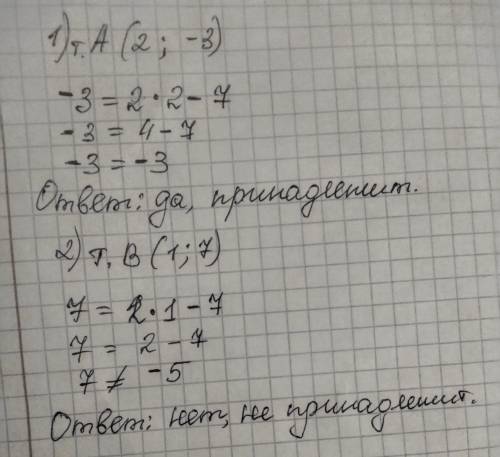 1) т. А (2; -3)
-3 = 2·2 - 7
-3 = 4 - 7
-3 = -3
Ответ: да, принадлежит.
2) т. В (1; 7)
7 = 2·1 - 7
7 = 2 - 7
7 ≠ -5
Ответ: нет, не принадлежит.